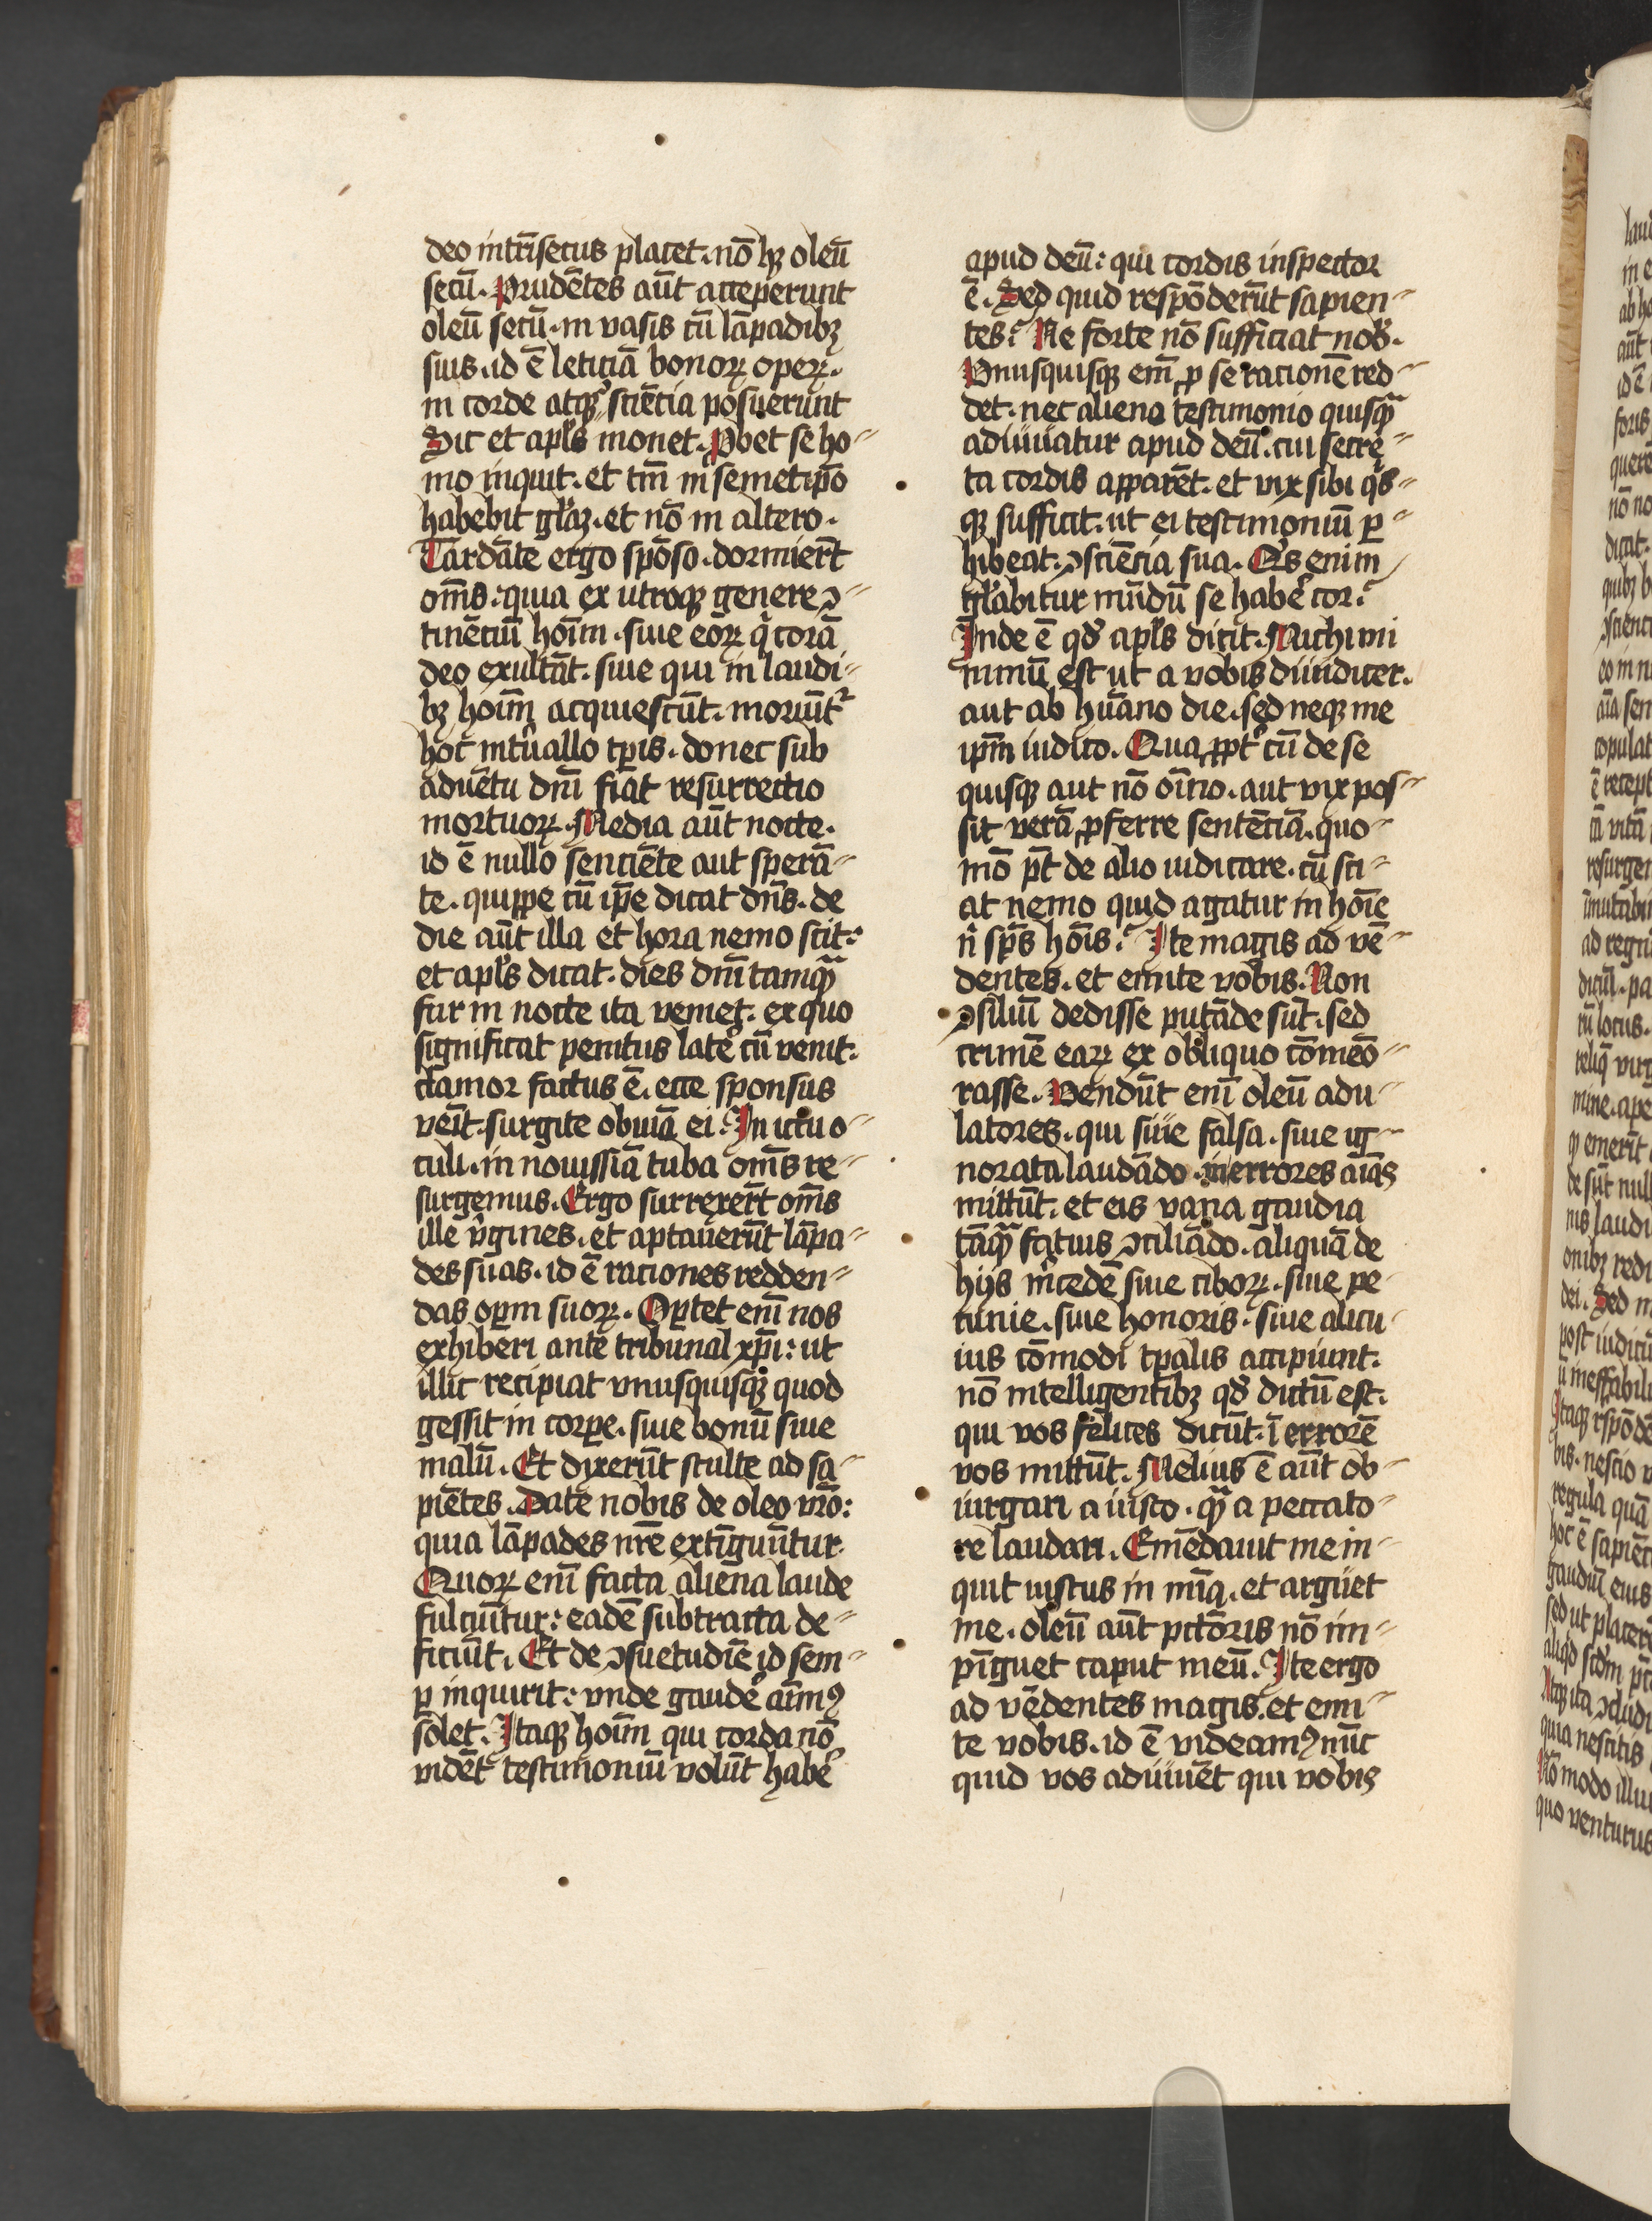 deo intrīsecus placet. nō hꝫ oleū
secū. Prudētes aūt acceperunt
oleū secū. in vasis cū lāpadibꝫ
suis. id ē leticiā bonoꝝ opeꝝ.
in corde atqꝫ sciēcia posuerunt
Sic et apl̓s monet. Ꝓbet se ho⸗
mo inquit. et tm̄ in semetip̄o
habebit gl̓aꝫ. et nō in altero.
Tardāte ergo spōso. dormier̄t
om̄s: quia ex utroqꝫ genere ꝯ⸗
tinēciū hoīm. siue eoꝝ q̄ corā
deo exultāt. siue qui in laudi⸗
bꝫ hoim̄ acquiescūt. moriūt᷑
hoc int̓uallo tp̄is. donec sub
aduētu dn̄i fiāt resurrectio
mortuoꝝ. Media aūt nocte.
id ē nullo senciēte aut sperā⸗
te. quippe cū ip̄e dicat dn̄s. de
die aūt illa et hora nemo scit:
et apl̓s dicat. dies dn̄i tamqᷓ
fur in nocte ita veniet. ex quo
significat penitus late᷑ cū venit.
clamor factus ē. ecce sponsus
veīt. surgite obuiā ei. In ictu o⸗
culi. in nouissīa tuba om̄s re⸗
surgemus. Ergo surrexer̄t om̄s
ille v̓gines. et aptauerūt lāpa⸗
des suas. id ē raciones redden⸗
das oꝑm suoꝝ. Oꝑtet enī nos
exhiberi ante tribunal xp̄i: ut
illic recipiat vnusquisqꝫ quod
gessit in corꝑe. siue bonū siue
malū. Et dyxerūt stulte ad sa⸗
piētes. Date nobis de oleo vr̄o:
quia lāpades nr̄e extīguūtur.
Quoꝝ enī facta aliena laude
fulciūtur: eadē subtracta de⸗
ficiūt. Et de ꝯsuetudīe id sem⸗
ꝑ inquirit: vnde gaude᷑ aīmꝰ
solet. Itaqꝫ hoīm qui corda nō
vidēt testimoniū volūt habe᷑
apud deū: qui cordis inspector
ē. Sed quid respōderūt sapien⸗
tes? Ne forte nō sufficiat nob̓.
Vnusquisqꝫ em̄ ꝓ se racionē red⸗
det. nec aliena testimonio quisqᷓ
adiuuatur apud deū. cui secre⸗
ta cordis apparēt. et vix sibi qͥs⸗
qꝫ sufficit. ut ei testimoniū ꝑ⸗
hibeat ꝯsciēcia sua. Qͥs enim
gl̓abitur mūdū se habe᷑ cor?
Inde ē qd̓ apl̓s dicit. Michi mi
nimū est ut a vobis diiudicer.
aut ab hūano die. sed neqꝫ me
ip̄m iudico. Qua ꝓpt᷑ cū de se
quisqꝫ aut nō oīno. aut vix pos⸗
sit verā ꝓferre sentēciā. quo⸗
mō pt̄ de alio iudicare. cū sci⸗
at nemo quid agatur in hoīe
n̓ sp̄s hoīs? Ite magis ad vē⸗
dentes. et emite vobis. Non
ꝯsiliū dedisse putāde sūt. sed
crimē eaꝝ ex obliquo cōmeō⸗
rasse. Vendūt enī oleū adu⸗
latores. qui siue falsa. siue ig⸗
norata laudādo. in errores aīas
mittūt. et eis vana gaudia
tāqᷓ fatuis ꝯciliādo. aliquā de
hijs m̓cedē siue ciboꝝ. siue pe⸗
cunie. siue honoris. siue alicu⸗
ius cōmodi tp̄alis accipiunt.
nō intelligentibꝫ qd̓ dictū est.
qui vos felices dicūt. ī errorē
vos mittūt. Melius ē aūt ob⸗
iurgari a iusto. qᷓ a peccato⸗
re laudari. Emēdauit me in⸗
quit iustus in mīa. et arguet
me. oleū aūt pctōris nō im⸗
pīguet caput meū. Ite ergo
ad vēdentes magis. et emi⸗
te vobis. id ē videamꝰ nūc
quid vos adiuuēt qui vobis